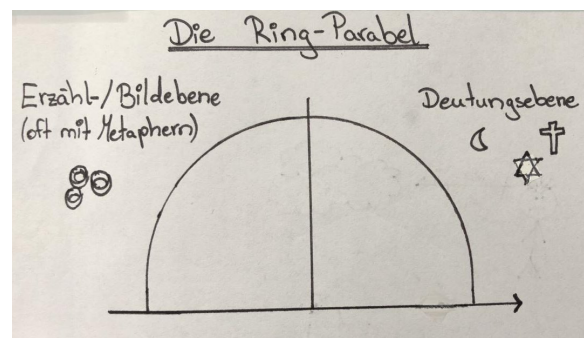 Die Ring-Parabel
Erzähl-/Bildebene
(oft mit Metaphern)
Deutungsebene